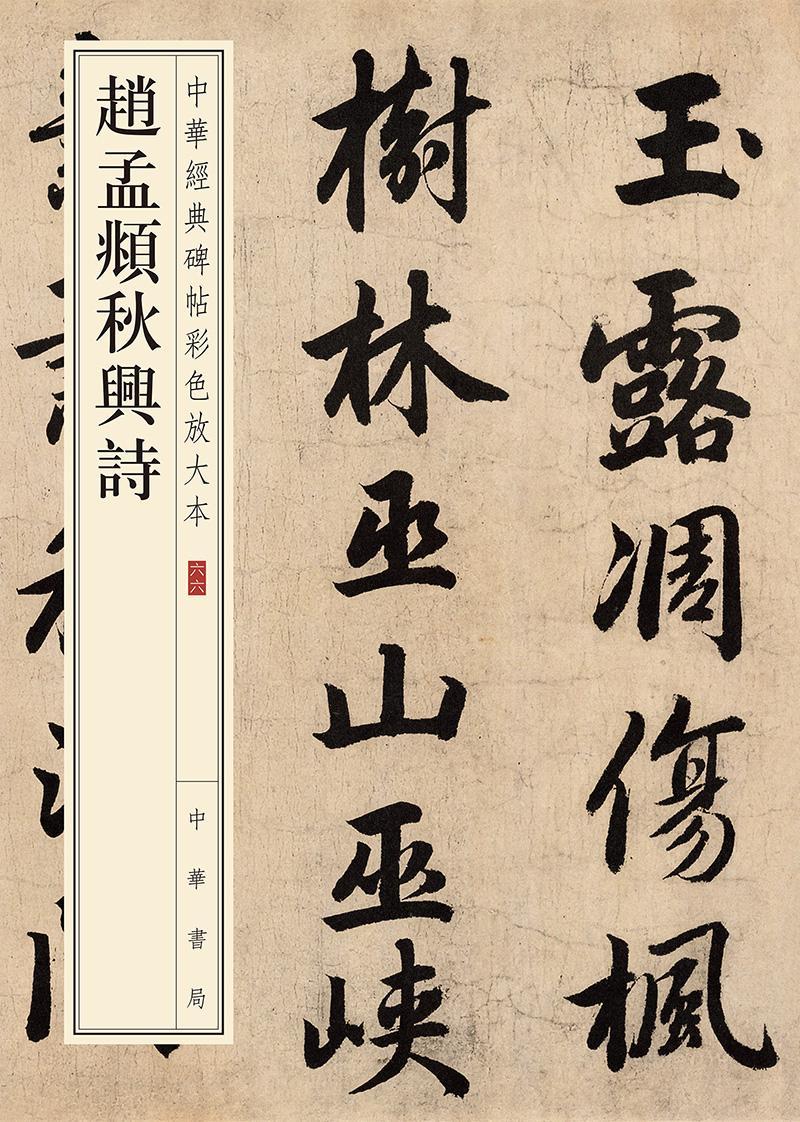 玉露凋傷楓
樹林巫山巫峽
中華經典碑帖彩色放大本
六六
中華書局
趙孟頫秋興詩